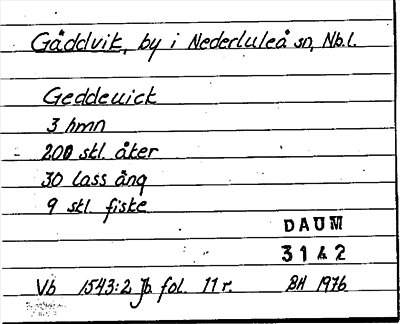 Gäddvik, by i Nederluleå sn, Nb.l.
Geddeuick
3 hmn
200 skl. åker
30 lass äng
9 skl. fiske
DAUM
3142
Vb 1543:2 Jb fol. 11 r. BH 1976